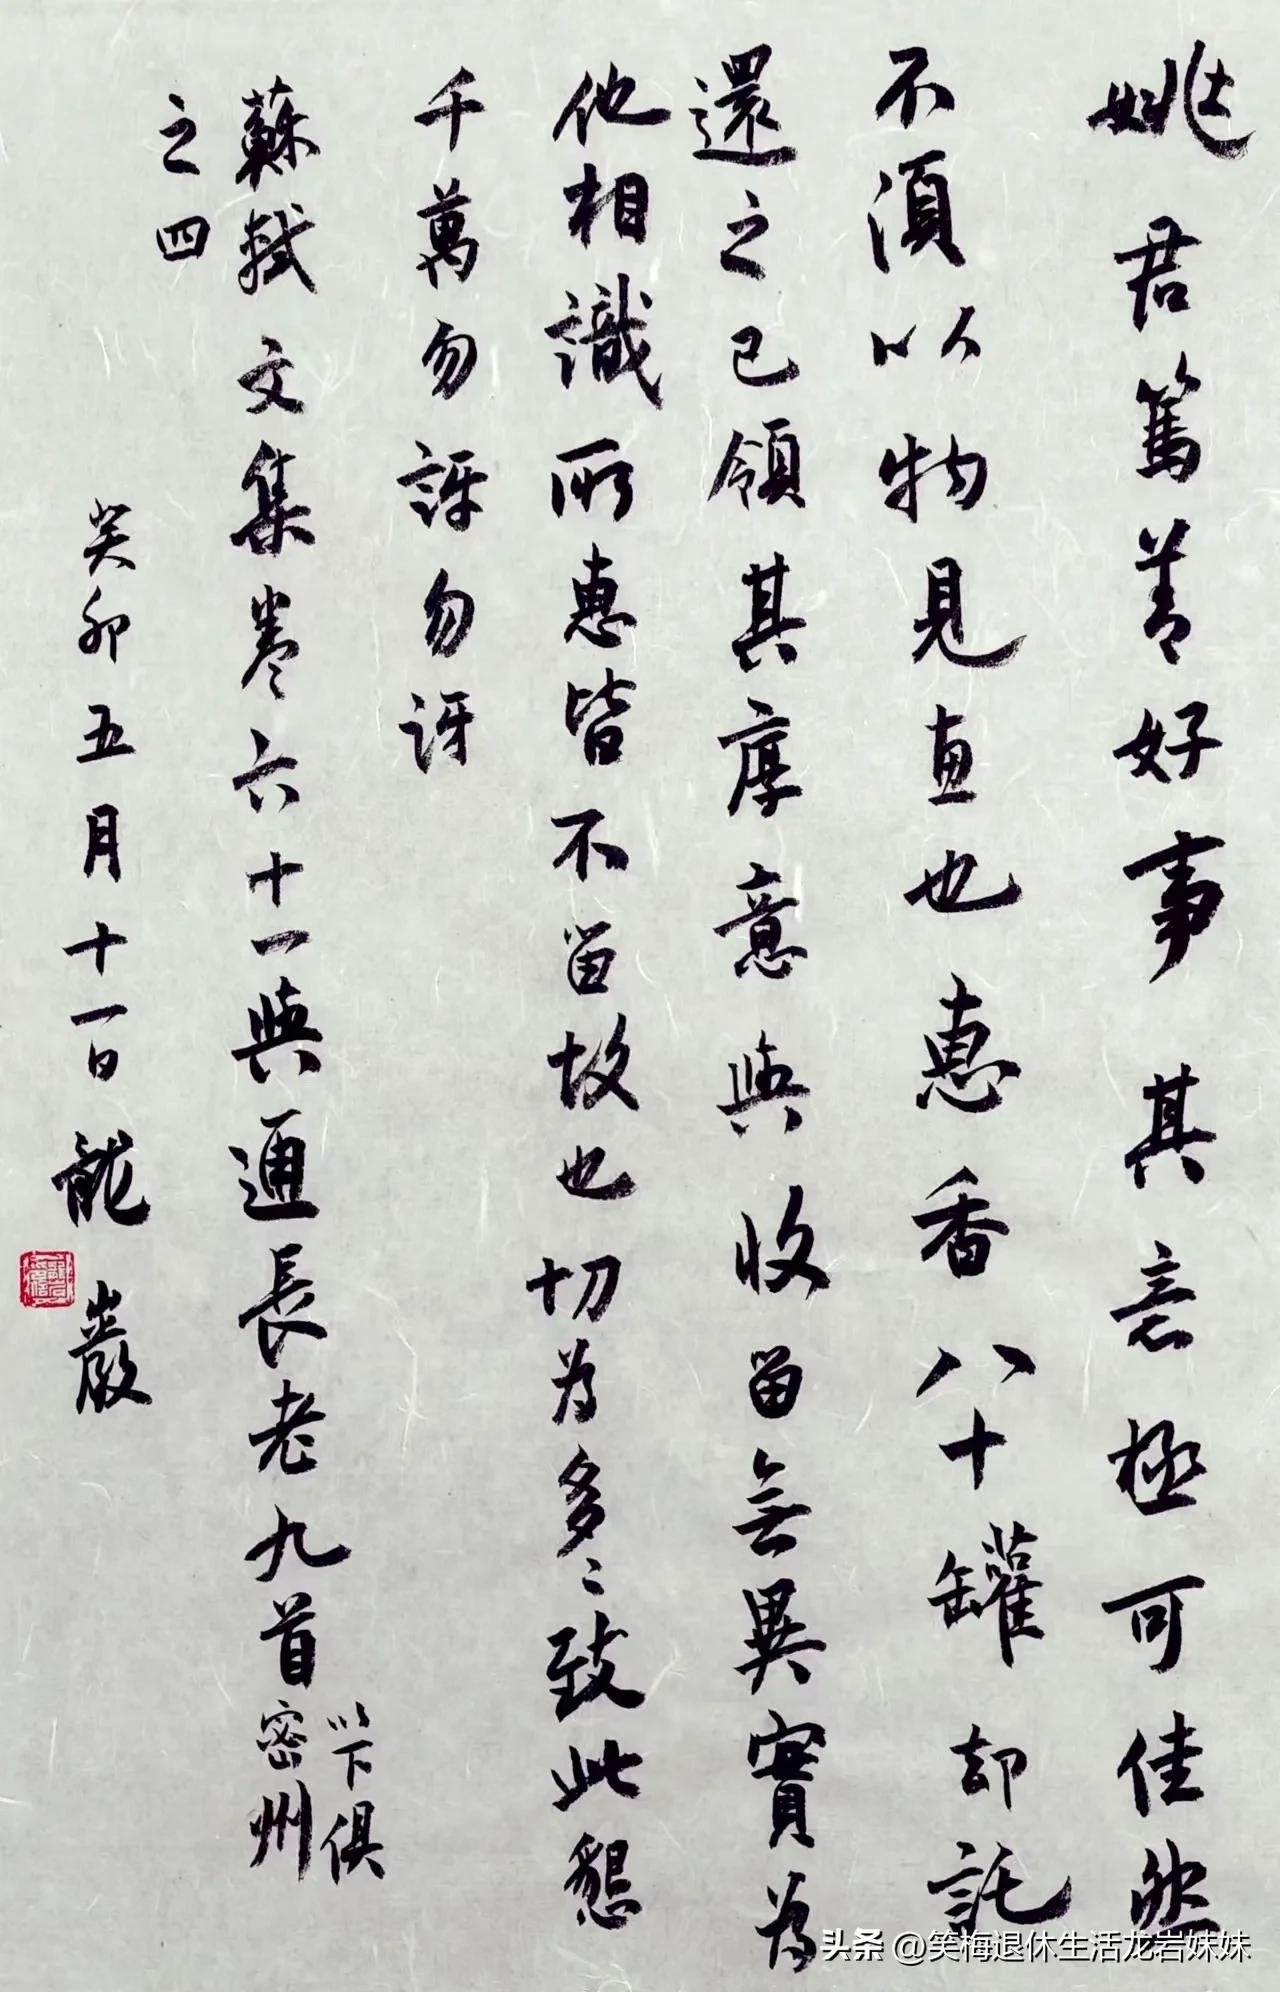 姚君篤善好事其意極可佳然
不須以物見直也惠香八十罐却託
還之已領其厚意與收留無異實為
他相識所惠皆不留故也切為多〻致此懇
千萬勿訝勿訝
蘇軾文集卷六十一與通長老九首以下俱密州
之四
癸卯五月十一日龍巖
头条 @笑梅退休生活龙岩妹妹